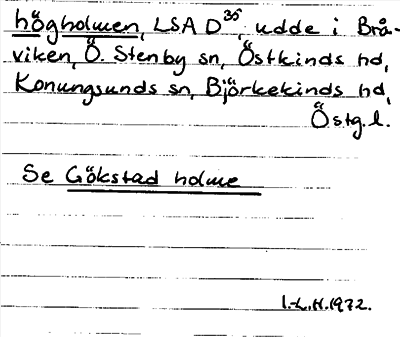 högholmen, LSA D³⁵, udde i Brå-
viken, Ö. Stenby sn, Östkinds hd,
Konungsunds sn, Björkekinds hd,
Östg.l.
Se Gökstad holme
I.-L.H.1972.